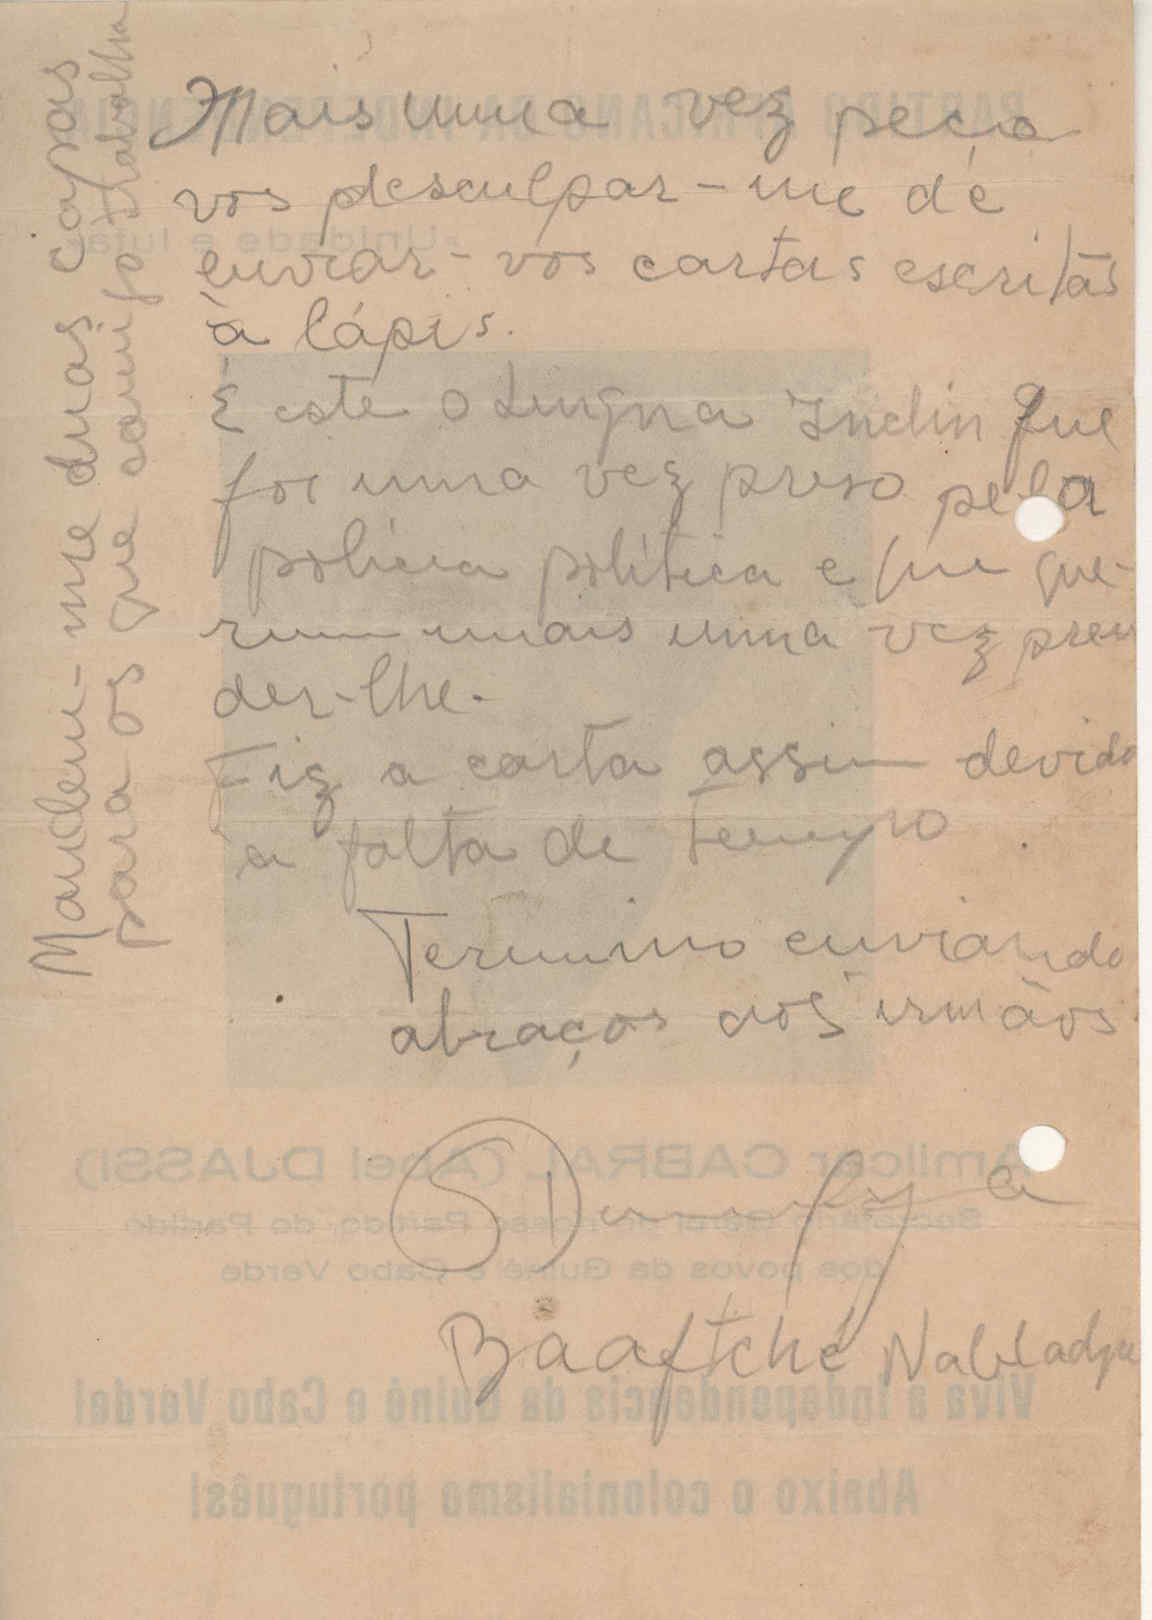 Mais uma vez peço
vos desculpar-me de
enviar-vos cartas escritas
à lápis.
É este o Lingna Indin que
foi uma vez preso pela
polícia política e que que-
rem mais uma vez pren
der-lhe.
Fiz a carta assim devido
à falta de tempo
Termino enviando
abraços aos irmãos
Baaftché Nabladju
Mandem-me duas capas
para os que comigo trabalha
PARTIDO AFRICANO DA INDEPENDÊNCIA
«Unidade e luta»
Amilcar CABRAL (Abel DJASSI)
Secretário Geral do nosso Partido, do Partido
dos povos da Guiné e Cabo Verde
Viva a Independência da Guiné e Cabo Verde!
Abaixo o colonialismo português!